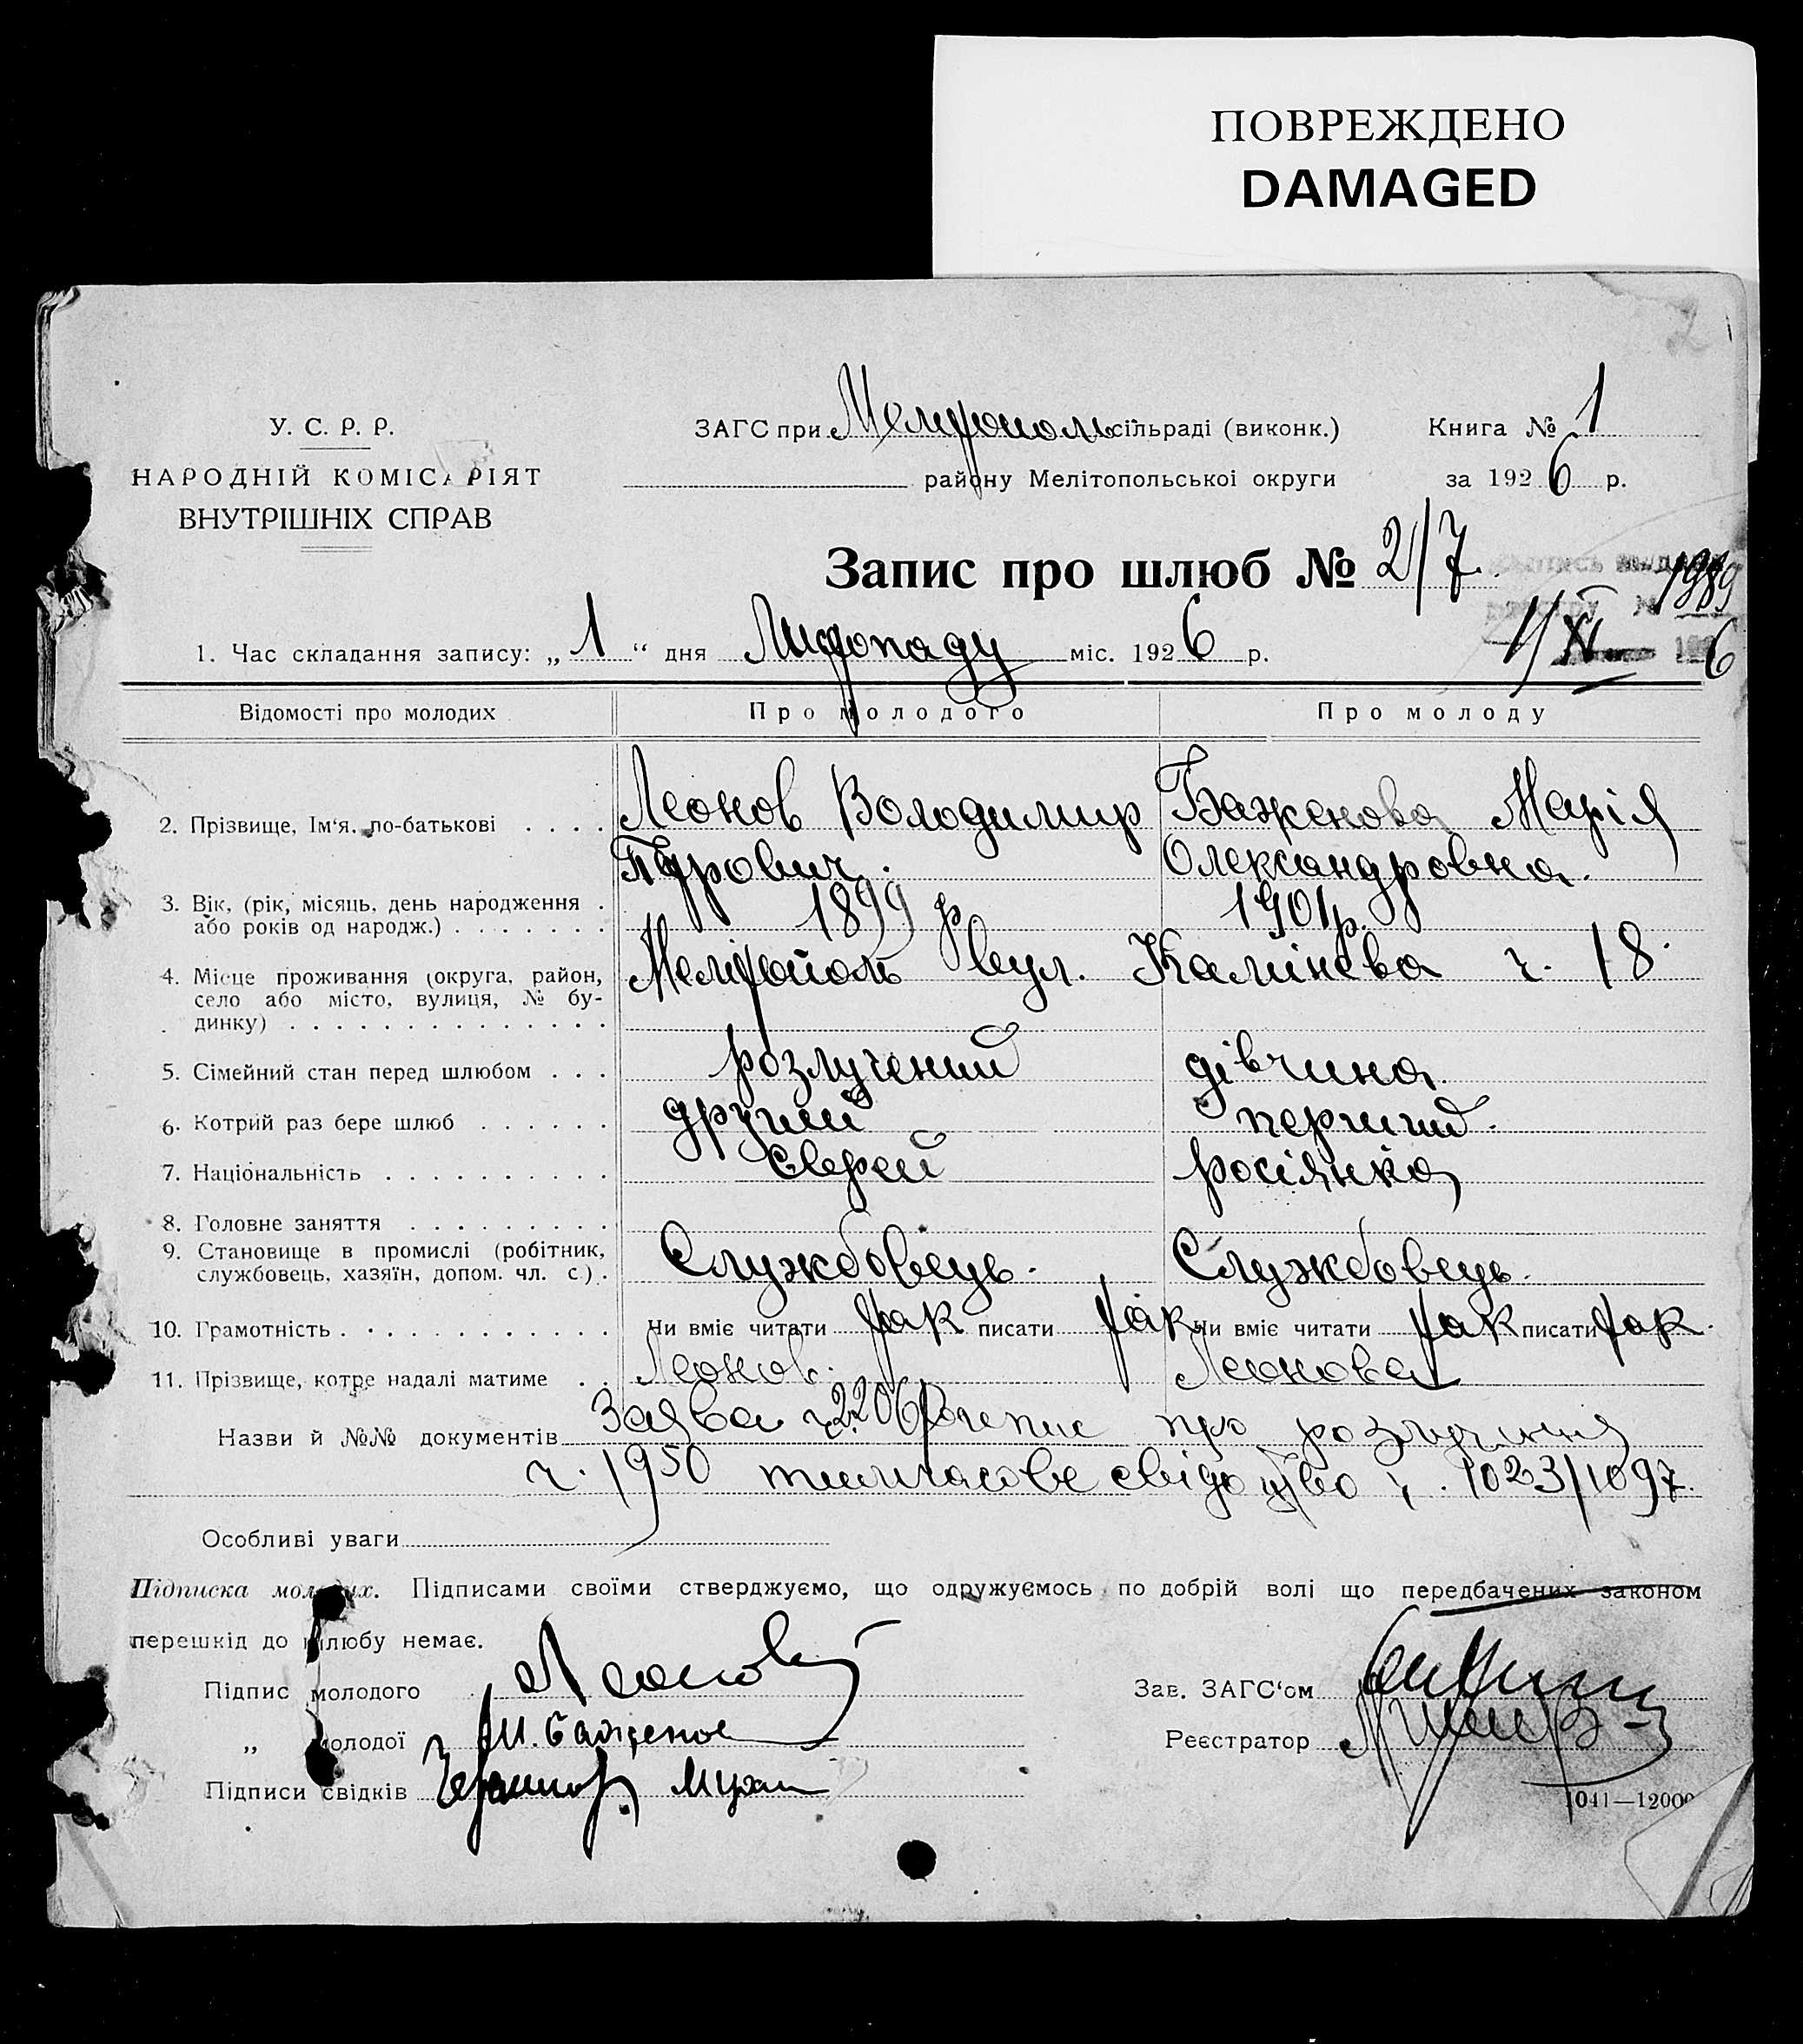 ПОВРЕЖДЕНО
DAMAGED
2
У. С. Р. Р.
НАРОДНІЙ КОМІСАРІЯТ
ВНУТРІШНІХ СПРАВ
ЗАГС при Мелітополь сільраді (виконк.)
району Мелітопольської округи
Книга № 1
за 1926 р.
Запис про шлюб № 2/7.
1989
1/XI 1926
1. Час складання запису: „ 1 “ дня Листопаду міс. 1926 р.
Відомості про молодих Про молодого Про молоду
2. Прізвище, Ім'я, по-батькові . . . . Леонов Володимир Баженова Марія
Петрович. Олександровна.
3. Вік, (рік, місяць, день народження .
або років од народж.) . . . . . . . 1899 р 1901 р.
4. Місце проживання (округа, район, Мелітополь вул. Калінева ч. 18
село або місто, вулиця, № бу-
динку) . . . . . . . . . . . . . .
5. Сімейний стан перед шлюбом . . . розлучений дівчина.
6. Котрий раз бере шлюб . . . . . . другий перший.
7. Національність . . . . . . . . . . єврей росіянка
8. Головне заняття . . . . . . . . .
9. Становище в промислі (робітник,
службовець, хазяїн, допом. чл. с.) . Службовець. Службовець.
10. Грамотність . . . . . . . . . . . . Чи вміє читати так писати так Чи вміє читати так писати так.
11. Прізвище, котре надалі матиме . . Леонов. Леонова
Назви й №№ документів Заява ч. 2206 про розлучення
ч. 1950 тимчасове свідоцтво ч. 1023/1097.
Особливі уваги
Підписка молодих. Підписами своїми стверджуємо, що одружуємось по добрій волі що передбачених законом
перешкід до шлюбу немає.
Підпис молодого Леонов
„ молодої М. Баженова
Підписи свідків
Зав. ЗАГС'ом
Реєстратор
1041—12000